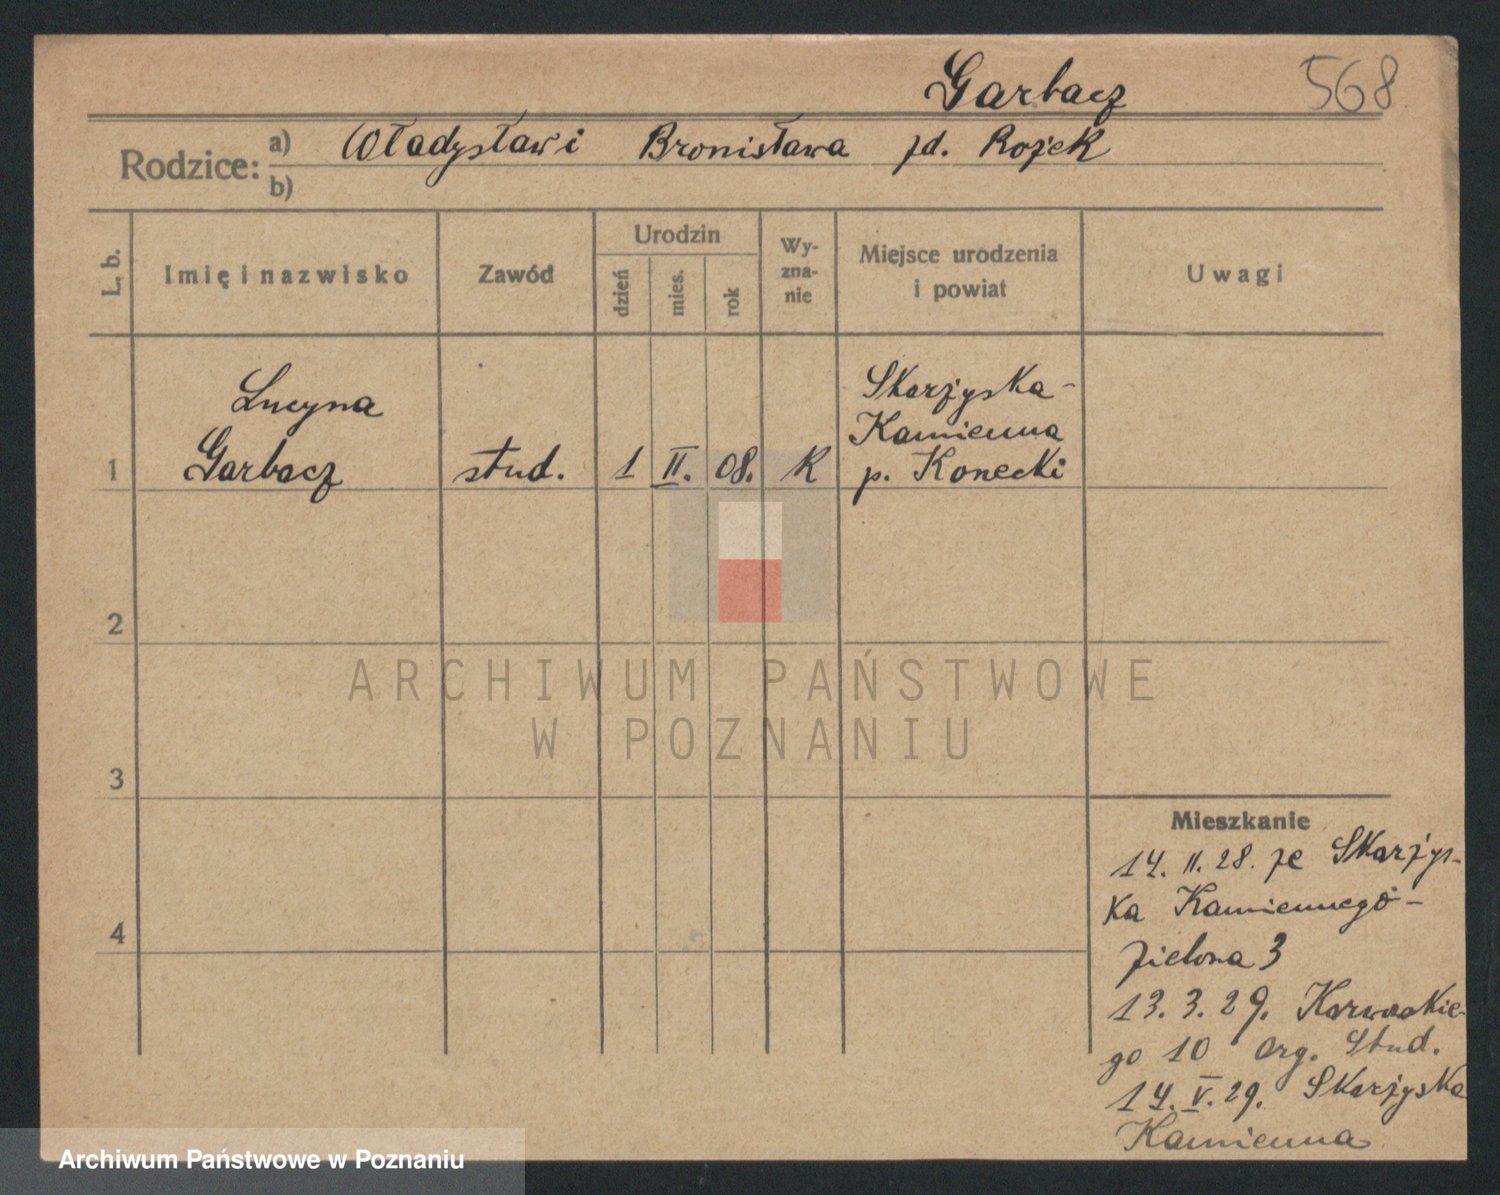 Garbacz 568
Rodzice: a) Władysław i Bronisława zd. Rojek
b)
L. b.
Imię i nazwisko
Zawód
Urodzin
dzień
mies.
rok
Wy-
zna-
nie
Miejsce urodzenia
i powiat
Uwagi
1
Lucyna
Garbacz
stud.
1 II. 08.
K
Skarżyska-
Kamienna
p. Konecki
2
3
4
Mieszkanie
14. II. 28. ze Skarżys-
ka Kamiennego -
Zielona 3
13. 3. 29.
go 10 org. Stud.
14. V. 29. Skarżyska
Kamienna
ARCHIWUM PAŃSTWOWE
W POZNANIU
Archiwum Państwowe w Poznaniu